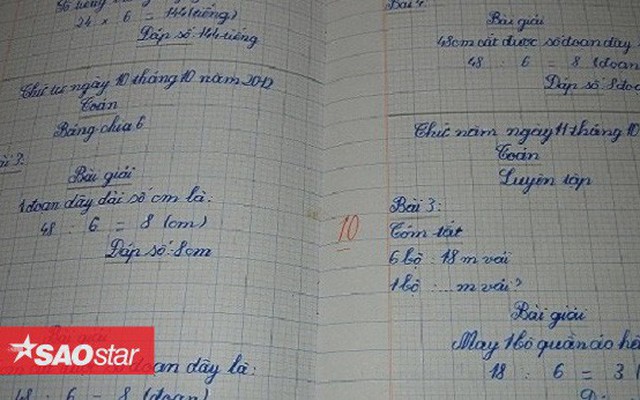 24 x 6 = 144 (tiếng)
Đáp số 144 tiếng
Thứ tư ngày 10 tháng 10 năm 2012
Toán
Bảng chia 6
Bài giải
1 đoạn dây dài số cm là:
48 : 6 = 8 (cm)
Đáp số: 8cm
Bài giải
đoạn dây là:
48 : 6 = 8 (đoạn)
SAOstar
10
Bài giải
48cm cắt được số đoạn dây
48 : 6 = 8 (đoạn
Đáp số 8 đoạ
Thứ năm ngày 11 tháng 10
Toán
Luyện tập
Bài 3:
Tóm tắt
6 bộ : 18 m vải
1 bộ : ... m vải?
Bài giải
May 1 bộ quần áo hế
18 : 6 = 3 (